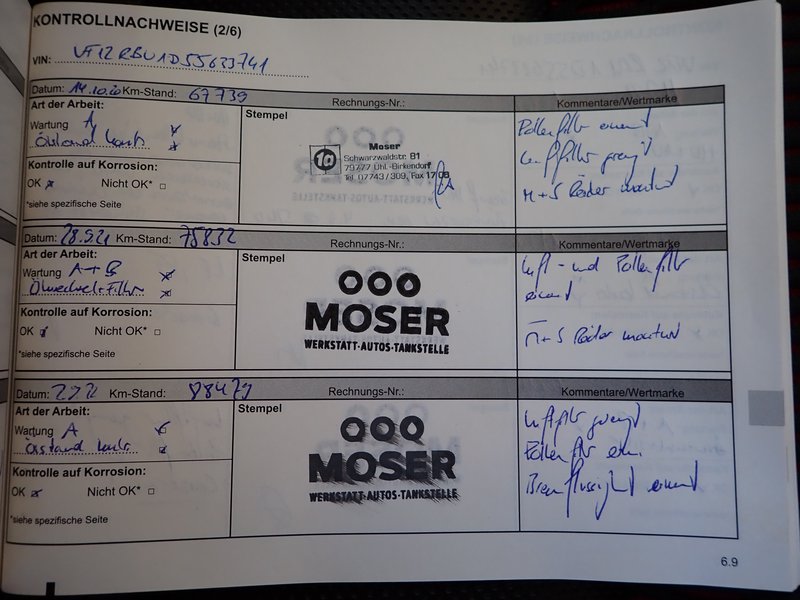 KONTROLLNACHWEISE (2/6)
VIN: VF12RBU1D55633741
Datum: 14.10.20 Km-Stand: 67739 Rechnungs-Nr.: Kommentare/Wertmarke
Art der Arbeit: Stempel
Wartung A
Ölstand kontr.
Kontrolle auf Korrosion:
OK Nicht OK*
*siehe spezifische Seite
1a
Moser
Schwarzwaldstr. 81
79777 Ühl.-Birkendorf
Tel. 07743 / 309, Fax 17 08
Pollenfilter erneuert
Luftfilter gereinigt
M+S Räder montiert
Datum: 28.9.21 Km-Stand: 75832 Rechnungs-Nr.: Kommentare/Wertmarke
Art der Arbeit: Stempel
Wartung A+B
Ölwechsel+Filter
Kontrolle auf Korrosion:
OK Nicht OK*
*siehe spezifische Seite
MOSER
WERKSTATT·AUTOS·TANKSTELLE
Luft- und Pollenfilter
erneuert
M+S Räder montiert
Datum: Km-Stand: 88479 Rechnungs-Nr.: Kommentare/Wertmarke
Art der Arbeit: Stempel
Wartung A
Ölstand kontr.
Kontrolle auf Korrosion:
OK Nicht OK*
*siehe spezifische Seite
MOSER
WERKSTATT·AUTOS·TANKSTELLE
Luftfilter gereinigt
Pollenfilter ern.
Bremsflüssigkeit erneuert
6.9